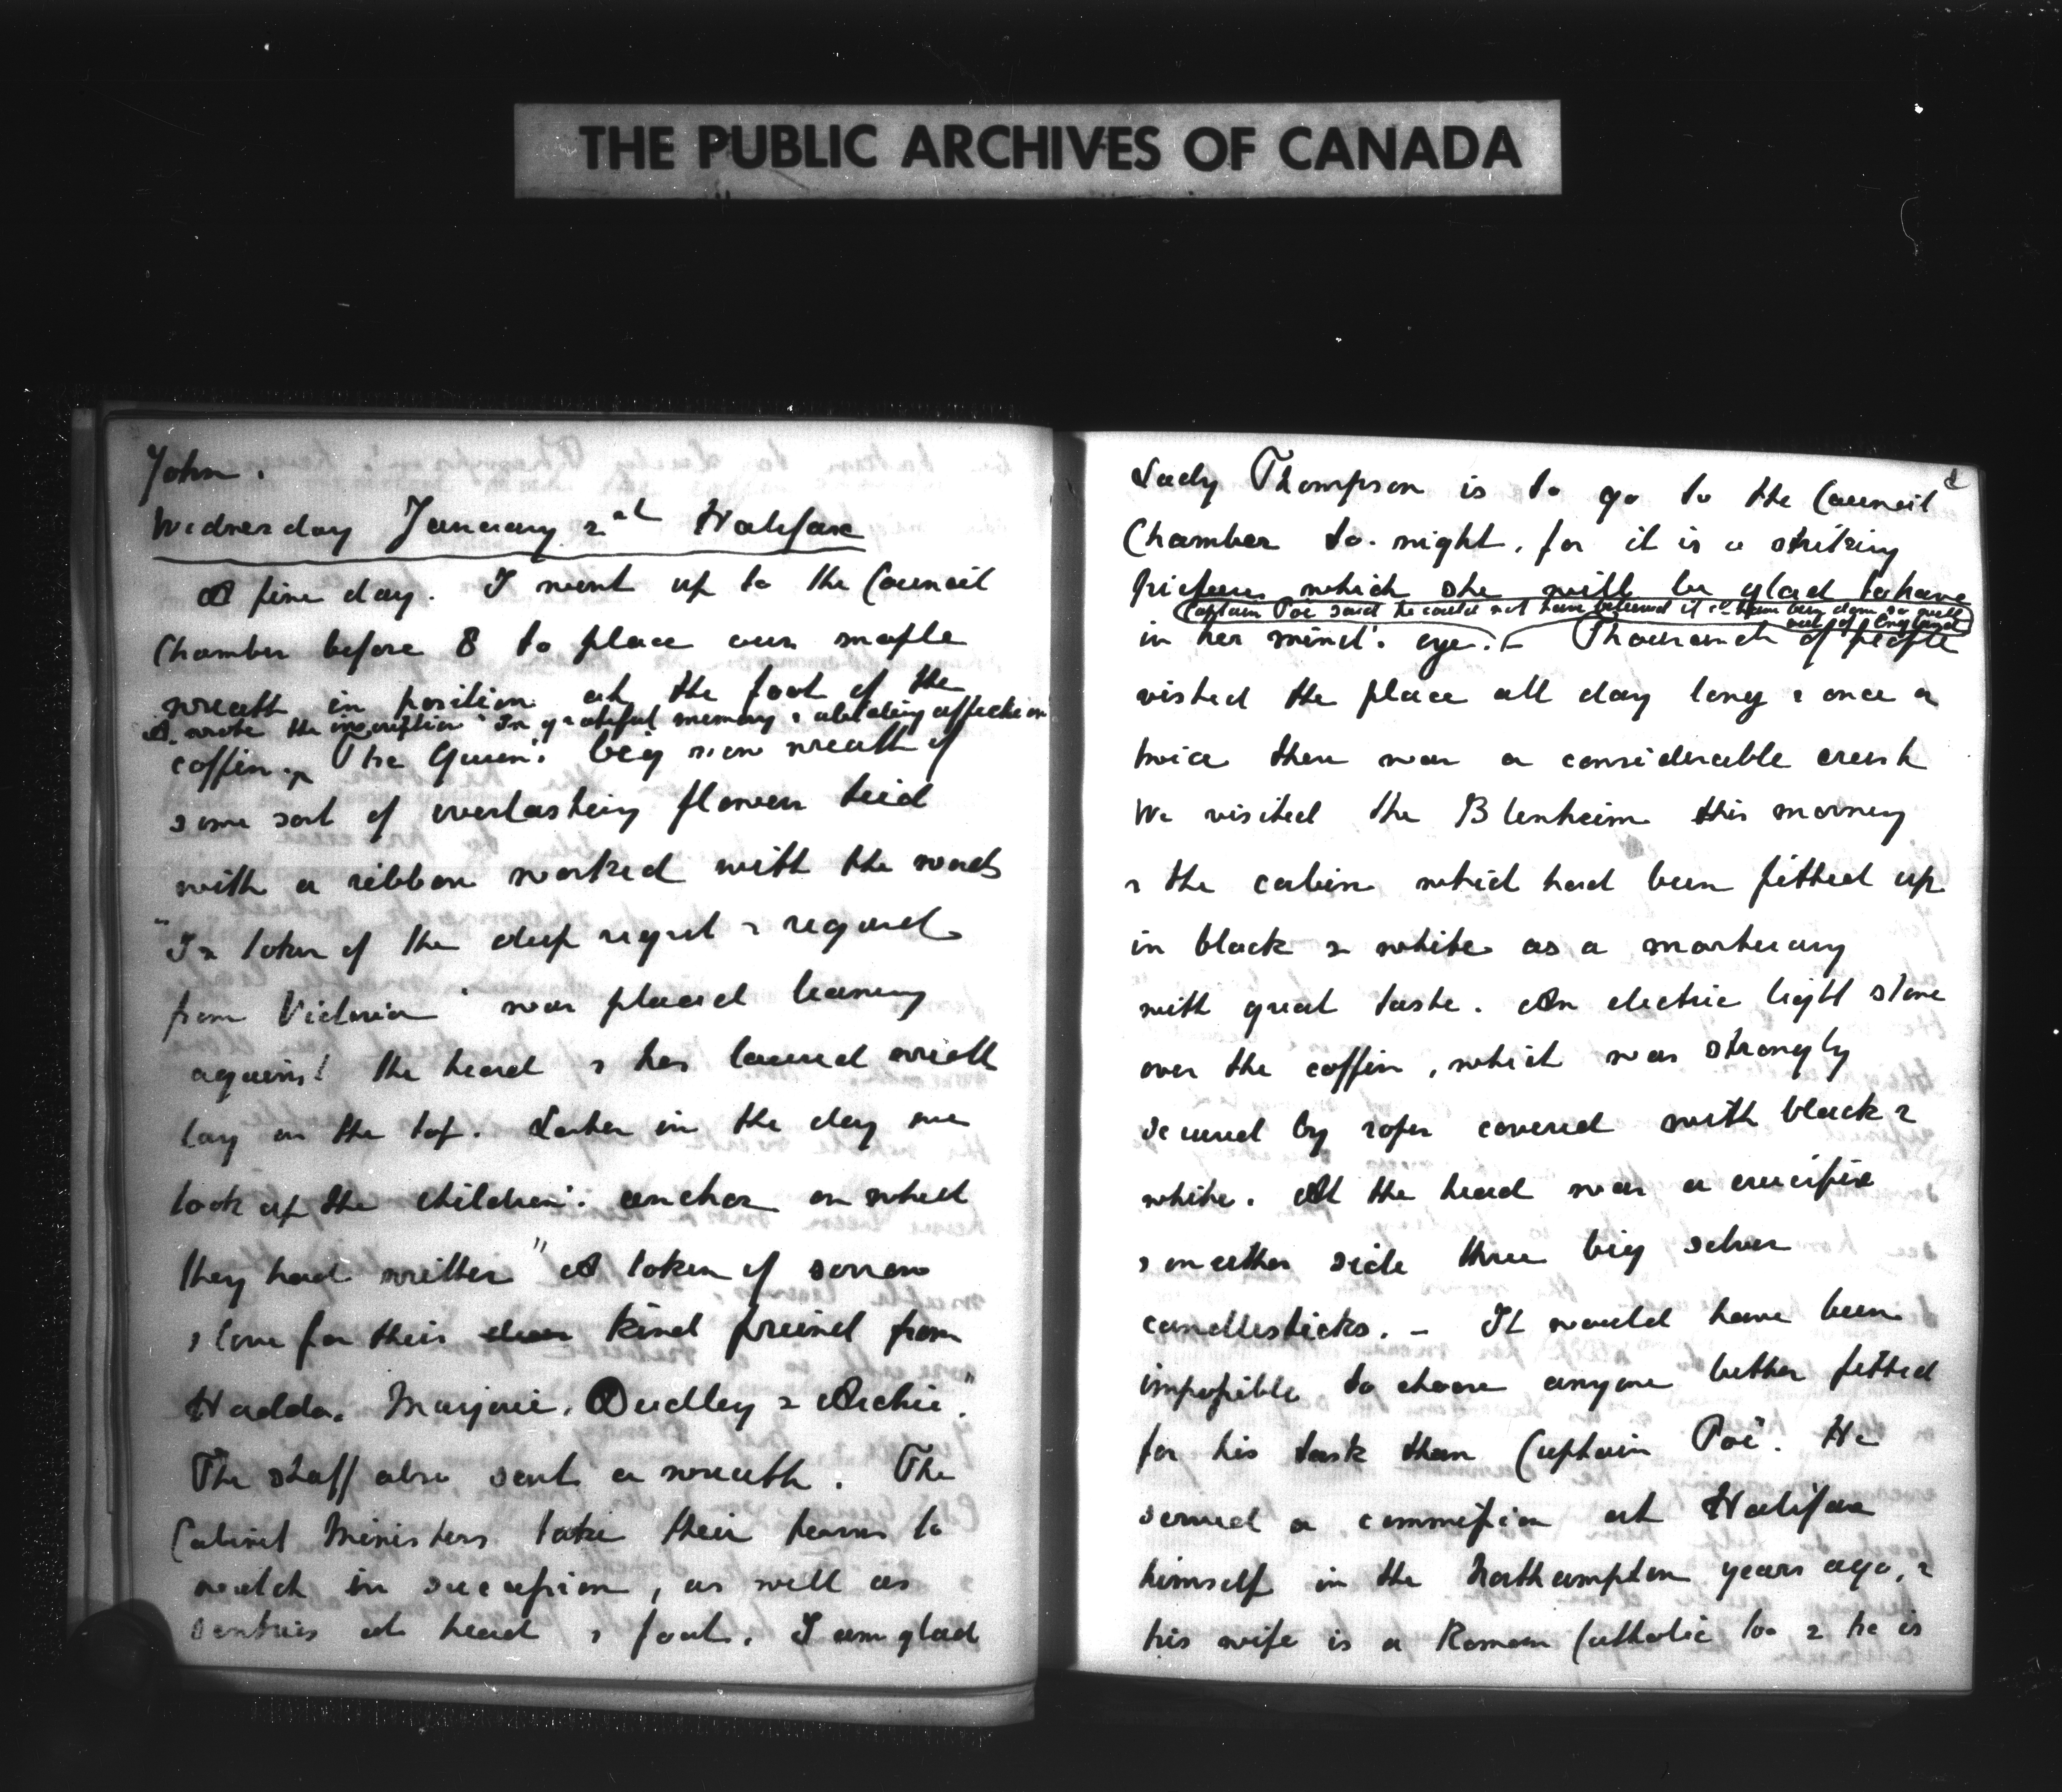 THE PUBLIC ARCHIVES OF CANADA
John.
Wednesday January 2nd Halifax
A fine day. I went up to the Council
Chamber before 8 to place our maple
wreath in position at the foot of the
A. wrote the inscription "In grateful memory & abiding affection"
coffin. The Queen's big new wreath of
some sort of everlasting flowers tied
with a ribbon worked with the words
"In token of the deep regret & regard
from Victoria" was placed leaning
against the head & her laurel wreath
lay on the top. Later in the day we
took up the children's anchor on which
they had written "A token of sorrow
& love for their dear kind freind from
Haddo, Marjorie, Dudley & Archie."
The staff also sent a wreath. The
Cabinet Ministers take their turns to
watch in succession, as well as
sentries at head & foot. I am glad
Lady Thompson is to go to the Council
Chamber to-night, for it is a striking
picture which she will be glad to have
Captain Poë said he could not have beleived it cd. have been done so well
out of England
in her mind's eye. – Thousands of people
visited the place all day long & once or
twice there was a considerable crush
We visited the Blenheim this morning
& the cabin which had been fitted up
in black & white as a mortuary
with great taste. An electric light shone
over the coffin, which was strongly
secured by ropes covered with black &
white. At the head was a crucifix
& on either side three big silver
candlesticks. – It would have been
impossible to choose anyone better fitted
for his task than Captain Poë. He
served a commission at Halifax
himself in the Northampton years ago, &
his wife is a Roman Catholic too & he is